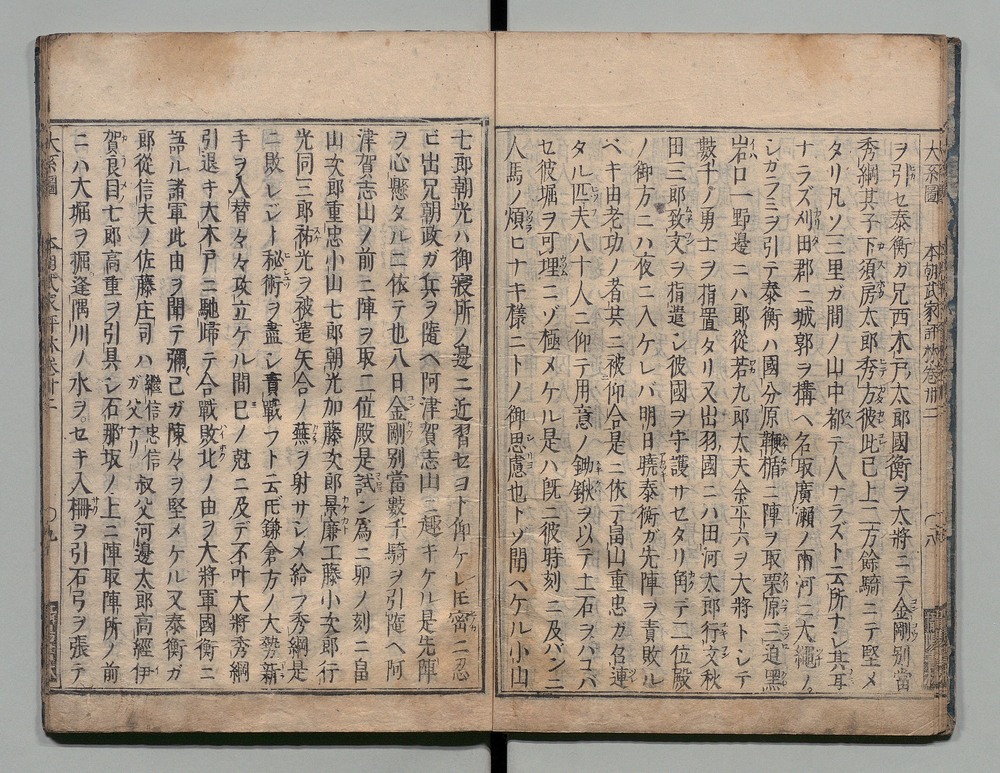 大系圖 本朝武家評林卷卅二 ○八
ヲ引セ泰衡ガ兄西木戸太郎國衡ヲ大將ニテ金剛別當
秀綱其子下須房太郎秀方彼此已上二万餘騎ニテ堅メ
タリ凡ソ三里ガ間ノ山中都テ人ナラズト云所ナシ其耳
ナラズ刈田郡ニ城郭ヲ構ヘ名取廣瀬ノ兩河ニ大縄ノ
シガラミヲ引テ泰衡ハ國分原鞭楯ニ陣ヲ取栗原三迫黒
岩口一野邊ニハ郎從若九郎太夫余平六ヲ大將トシテ
數千ノ勇士ヲ指置タリ又出羽國ニハ田河太郎行文秋
田三郎致文ヲ指遣シ彼國ヲ守護サセタリ角テ二位殿
ノ御方ニハ夜ニ入ケレバ明日曉泰衡ガ先陣ヲ責敗ル
ベキ由老功ノ者共ニ被仰合是ニ依テ畠山重忠ガ召連
タル匹夫八十人ニ仰テ用意ノ鋤鍬ヲ以テ土石ヲハコバ
セ彼堀ヲ可埋ニゾ極メケル是ハ既ニ彼時刻ニ及バンニ
人馬ノ煩ヒナキ樣ニトノ御思慮也トゾ聞ヘケル小山
七郎朝光ハ御寢所ノ邊ニ近習セヨト仰ケレ𪜈密ニ忍
ビ出兄朝政ガ兵ヲ隨ヘ阿津賀志山ニ趣キケル是先陣
ヲ心懸タルニ依テ也八日金剛別當數千騎ヲ引隨ヘ阿
津賀志山ノ前ニ陣ヲ取二位殿是試ン爲ニ卯ノ刻ニ畠
山次郎重忠小山七郎朝光加藤次郎景廉工藤小次郎行
光同三郎祐光ヲ被遣矢合ノ蕪ヲ射サシメ給フ秀綱是
ニ敗レジト秘術ヲ盡シ責戰フト云𪜈鎌倉方ノ大勢新
手ヲ入替々々攻立ケル間巳ノ尅ニ及デ不叶大將秀綱
引退キ大木戸ニ馳歸テ合戰敗北ノ由ヲ大將軍國衡ニ
語ル諸軍此由ヲ聞テ彌己ガ陳々ヲ堅メケル又泰衡ガ
郎從信夫ノ佐藤庄司ハ繼信忠信ガ父ナリ叔父河邊太郎高經伊
賀良目七郎高重ヲ引具シ石那坂ノ上ニ陣取陣所ノ前
ニハ大堀ヲ掘逢隅川ノ水ヲセキ入柵ヲ引石弓ヲ張テ
大系圖 本朝武家評林卷卅二 ○九